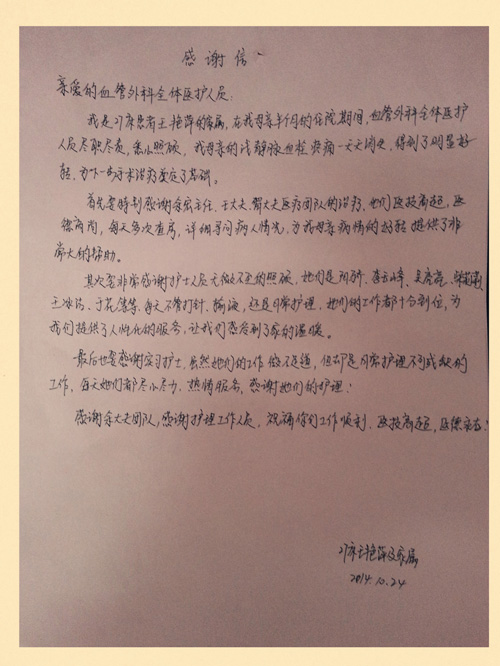 感谢信
亲爱的血管外科全体医护人员:
我是27床患者王艳萍的家属,在我母亲半个月的住院期间,血管外科全体医护
人员尽职尽责,悉心照顾,我母亲的浅静脉血栓疼痛一天天消失,得到了明显好
转,为下一步手术治疗奠定了基础。
首先要特别感谢余宏主任、王大夫、贺大夫医疗团队的治疗,他们医技高超,医
德高尚,每天多次查房,详细寻问病人情况,为我母亲病情的好转提供了非
常大的帮助。
其次要非常感谢护士人员无微不至的照顾,她们是
王冰冰、于花等等,每天不管打针、输液,还是日常护理,她们的工作都十分到位,为
我们提供了人性化的服务,让我们感受到了家的温暖。
最后也要感谢实习护士,虽然她们的工作微不足道,但却是日常护理不可或缺的
工作,每天她们都尽心尽力,热情服务,感谢她们的护理!
感谢余大夫团队,感谢护理工作人员,祝福你们工作顺利,医技高超,医德
27床王艳萍及家属
2014.10.24